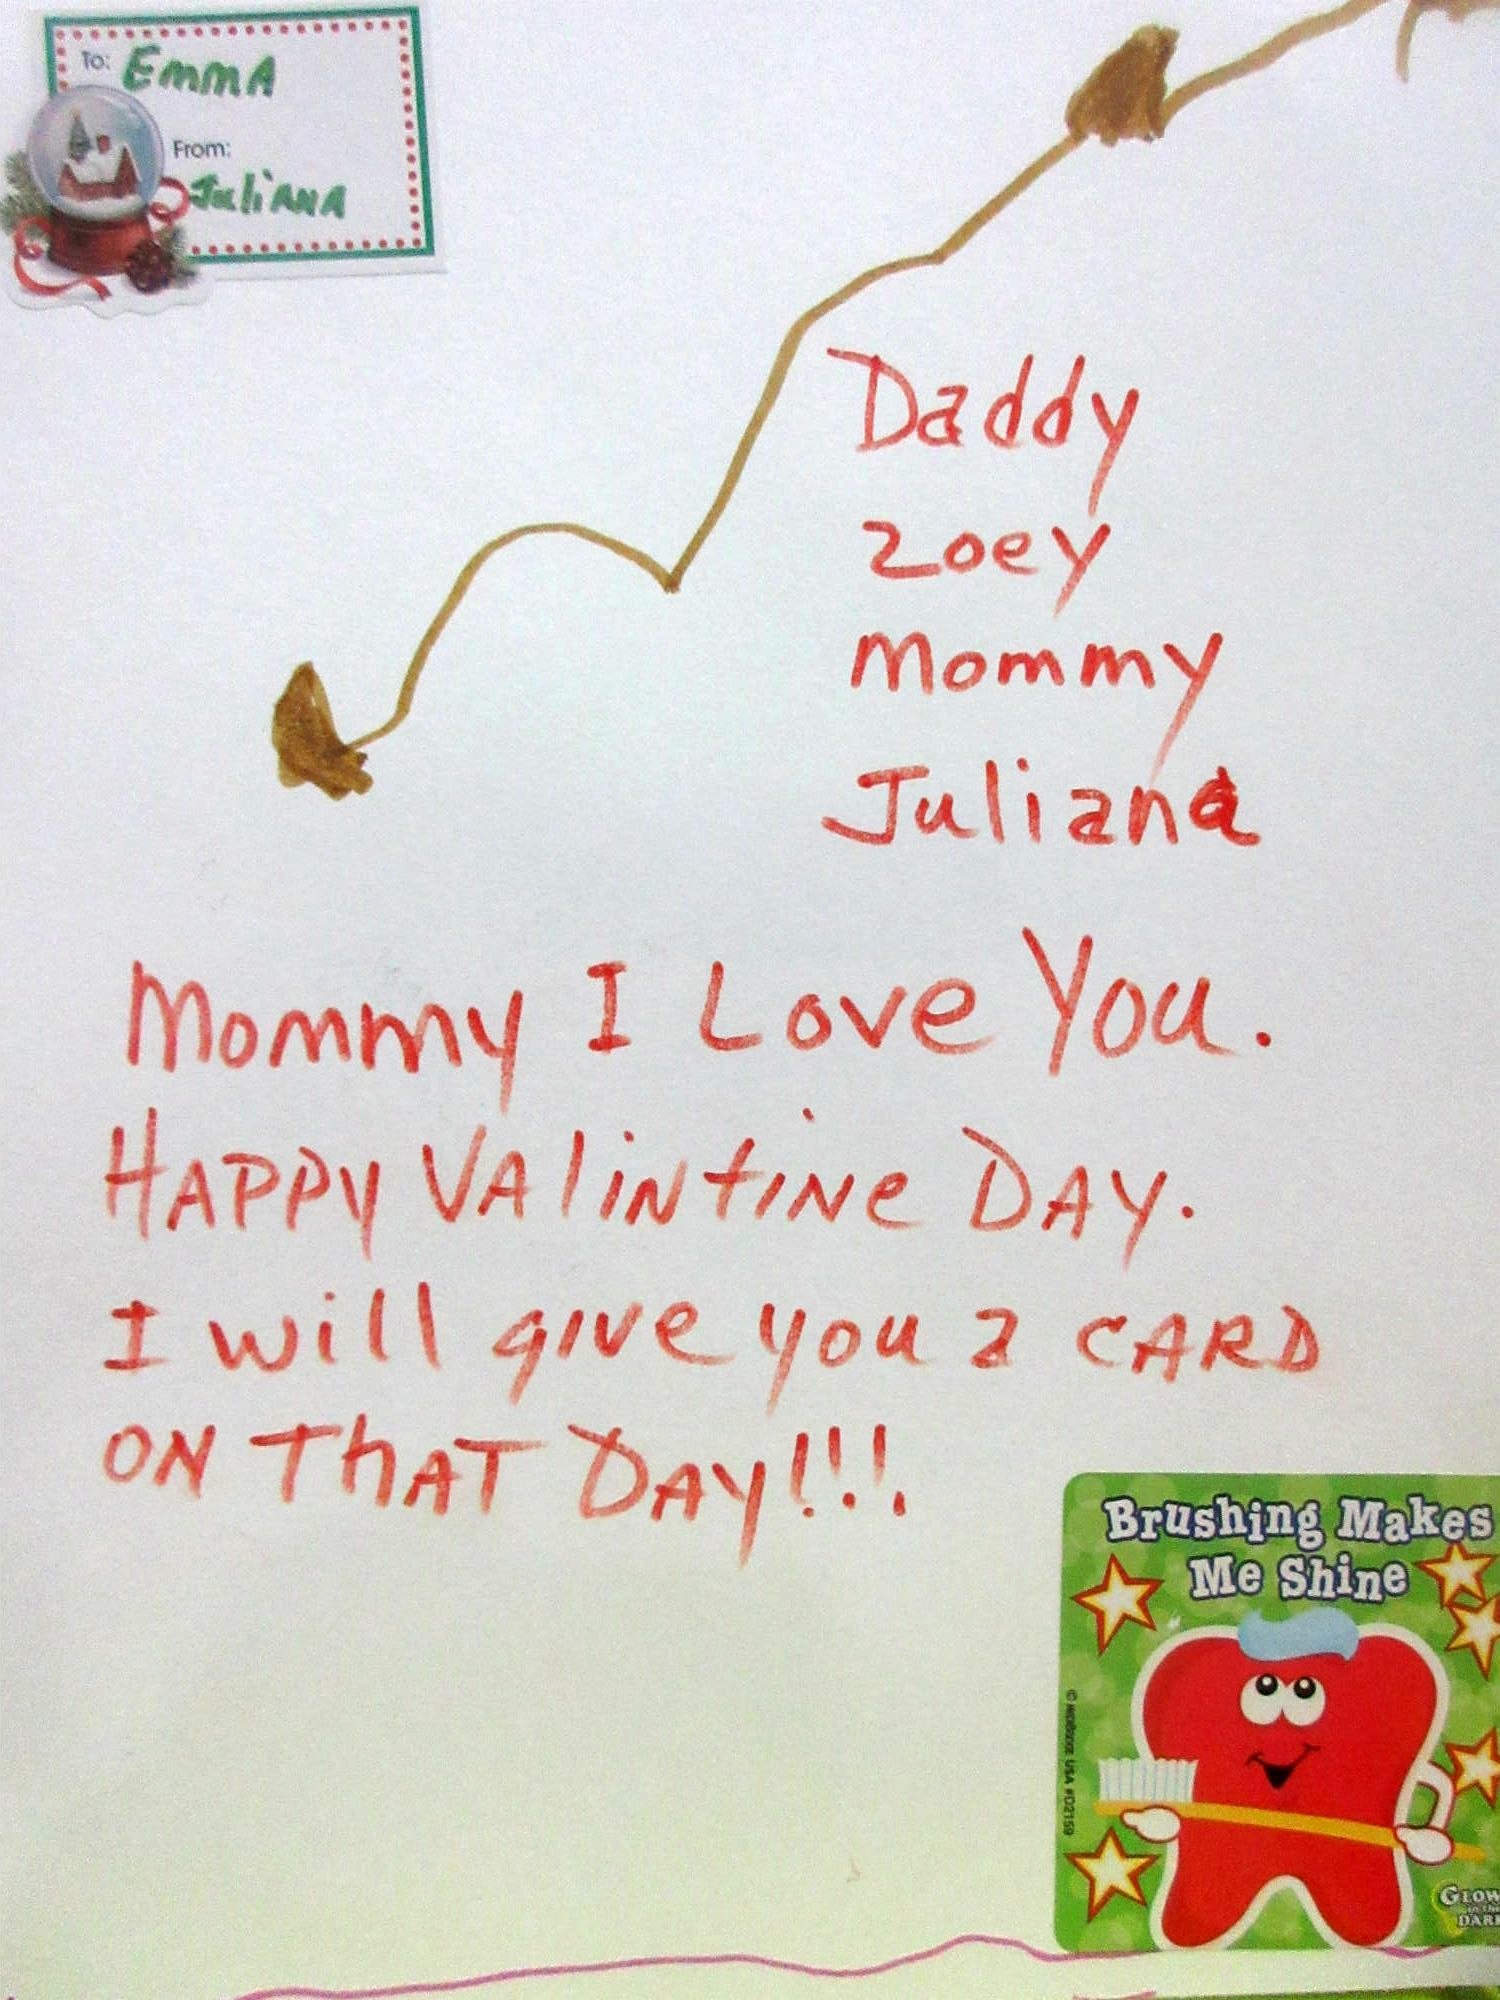 To: EMMA
From:
JuliANA
Daddy
Zoey
Mommy
Juliana
Mommy I Love You.
HAPPY VAlintiNe DAY.
I will give you a CARD
ON ThAT DAY!!!.
Brushing Makes
Me Shine
USA #D2159
GLOW
in the
DARK